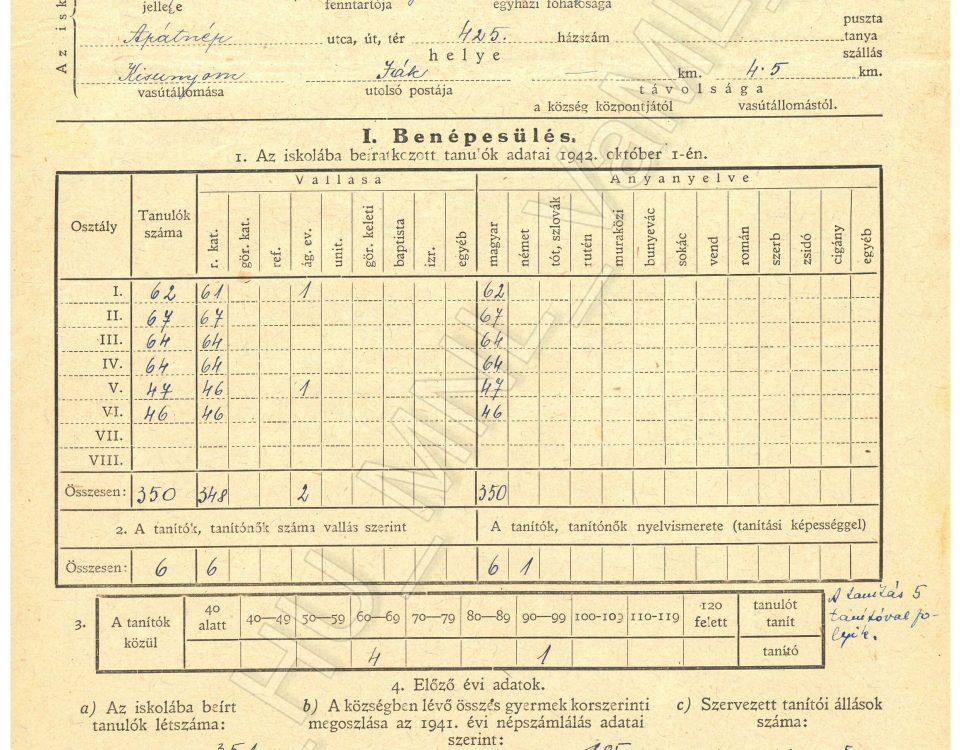 Az isk
jellege fenntartója egyházi főhatósága
puszta
Apátnép utca, út, tér 425. házszám tanya
helye szállás
Kisunyom Ják — km. 4·5 km.
vasútállomása utolsó postája távolsága
a község központjától vasútállomástól.
I. Benépesülés.
1. Az iskolába beiratkozott tanulók adatai 1942. október 1-én.
Osztály Tanulók száma Vallása Anyanyelve
r. kat. gör. kat. ref. ág. ev. unit. gör. keleti baptista izr. egyéb magyar német tót, szlovák rutén muraközi bunyevác sokác vend román szerb zsidó cigány egyéb
I. 62 61 1 62
II. 67 67 67
III. 64 64 64
IV. 64 64 64
V. 47 46 1 47
VI. 46 46 46
VII.
VIII.
Összesen: 350 348 2 350
2. A tanítók, tanítónők száma vallás szerint A tanítók, tanítónők nyelvismerete (tanítási képességgel)
Összesen: 6 6 6 1
3. A tanítók közül 40 alatt 40—49 50—59 60—69 70—79 80—89 90—99 100-109 110-119 120 felett tanulót tanít
4 1 tanító
A tanítás 5
tanítóval fo-
lyik.
4. Előző évi adatok.
a) Az iskolába beírt b) A községben lévő összes gyermek korszerinti c) Szervezett tanítói állások
tanulók létszáma: megoszlása az 1941. évi népszámlálás adatai száma:
szerint:
351
HU_MNL_VaML